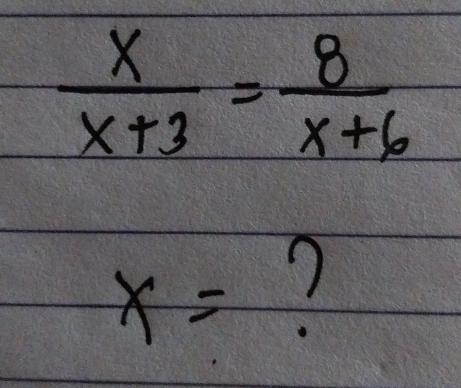 x/(x+3) = 8/(x+6)
x = ?